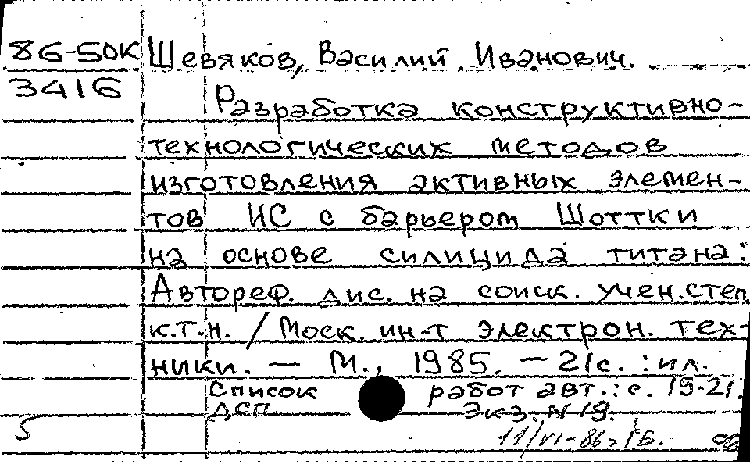 86-50К Шевяков, Василий Иванович.
3416 Разработка конструктивно-
технологических методов
изготовления активных элемен-
тов ИС с барьером Шоттки
на основе силицида титана:
Автореф. дис. на соиск. учен. степ
к.т.н. / Моск. ин-т электрон. тех-
ники. — М., 1985. — 21с. : ил.
Список работ авт.: с. 19-21.
ДСП Экз. N 19.
5